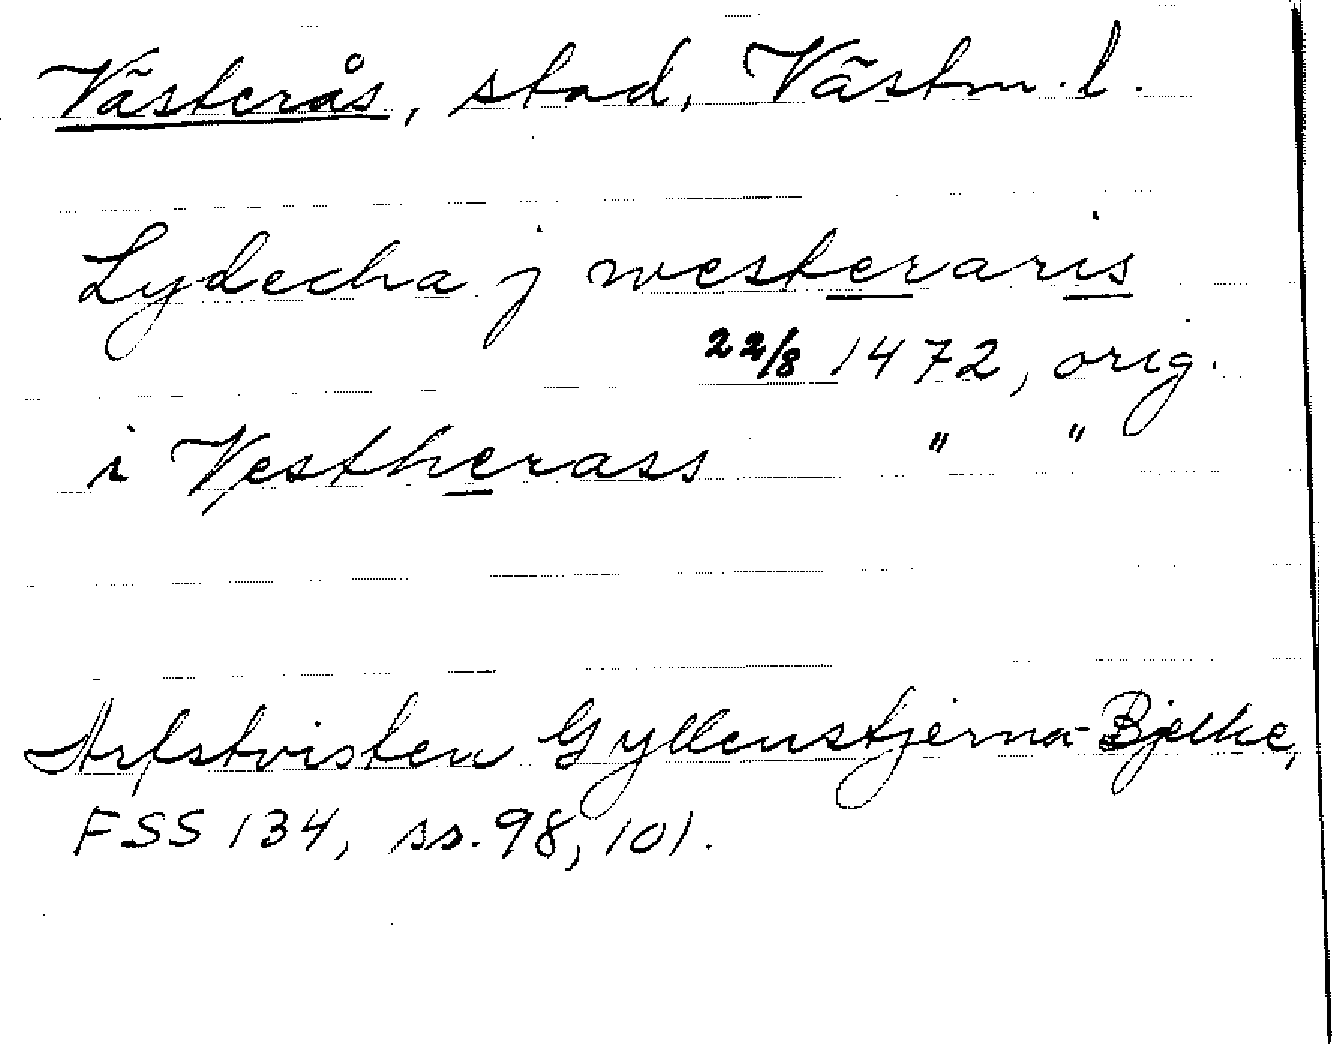 Västerås, stad, Västm. l.
Lydecha j westeraris
22/8 1472, orig.
i Vestherass " "
Arfstvisten Gyllenstjerna-Bjelke,
FSS 134, ss. 98, 101.